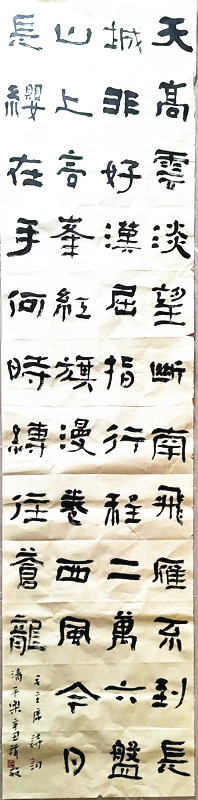 天高雲淡望断南飛雁不到長
城非好漢屈指行程二萬六盤
山上高峯紅旗漫卷西風今日
長纓在手何時縛住蒼龍
毛主席詩詞
清平樂辛丑